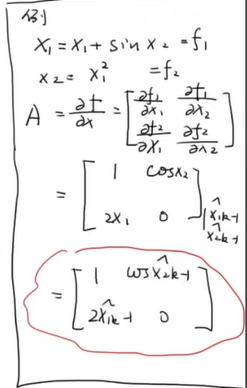 例
X₁ = X₁ + sin x₂ = f₁
x₂ = x₁² = f₂
A = ∂f/∂x = [ ∂f₁/∂x₁ ∂f₁/∂x₂
∂f₂/∂x₁ ∂f₂/∂x₂ ]
= [ 1 cosx₂
2x₁ 0 ] | x̂₁k-1
x̂₂k-1
= [ 1 cos x̂₂k-1
2x̂₁k-1 0 ]